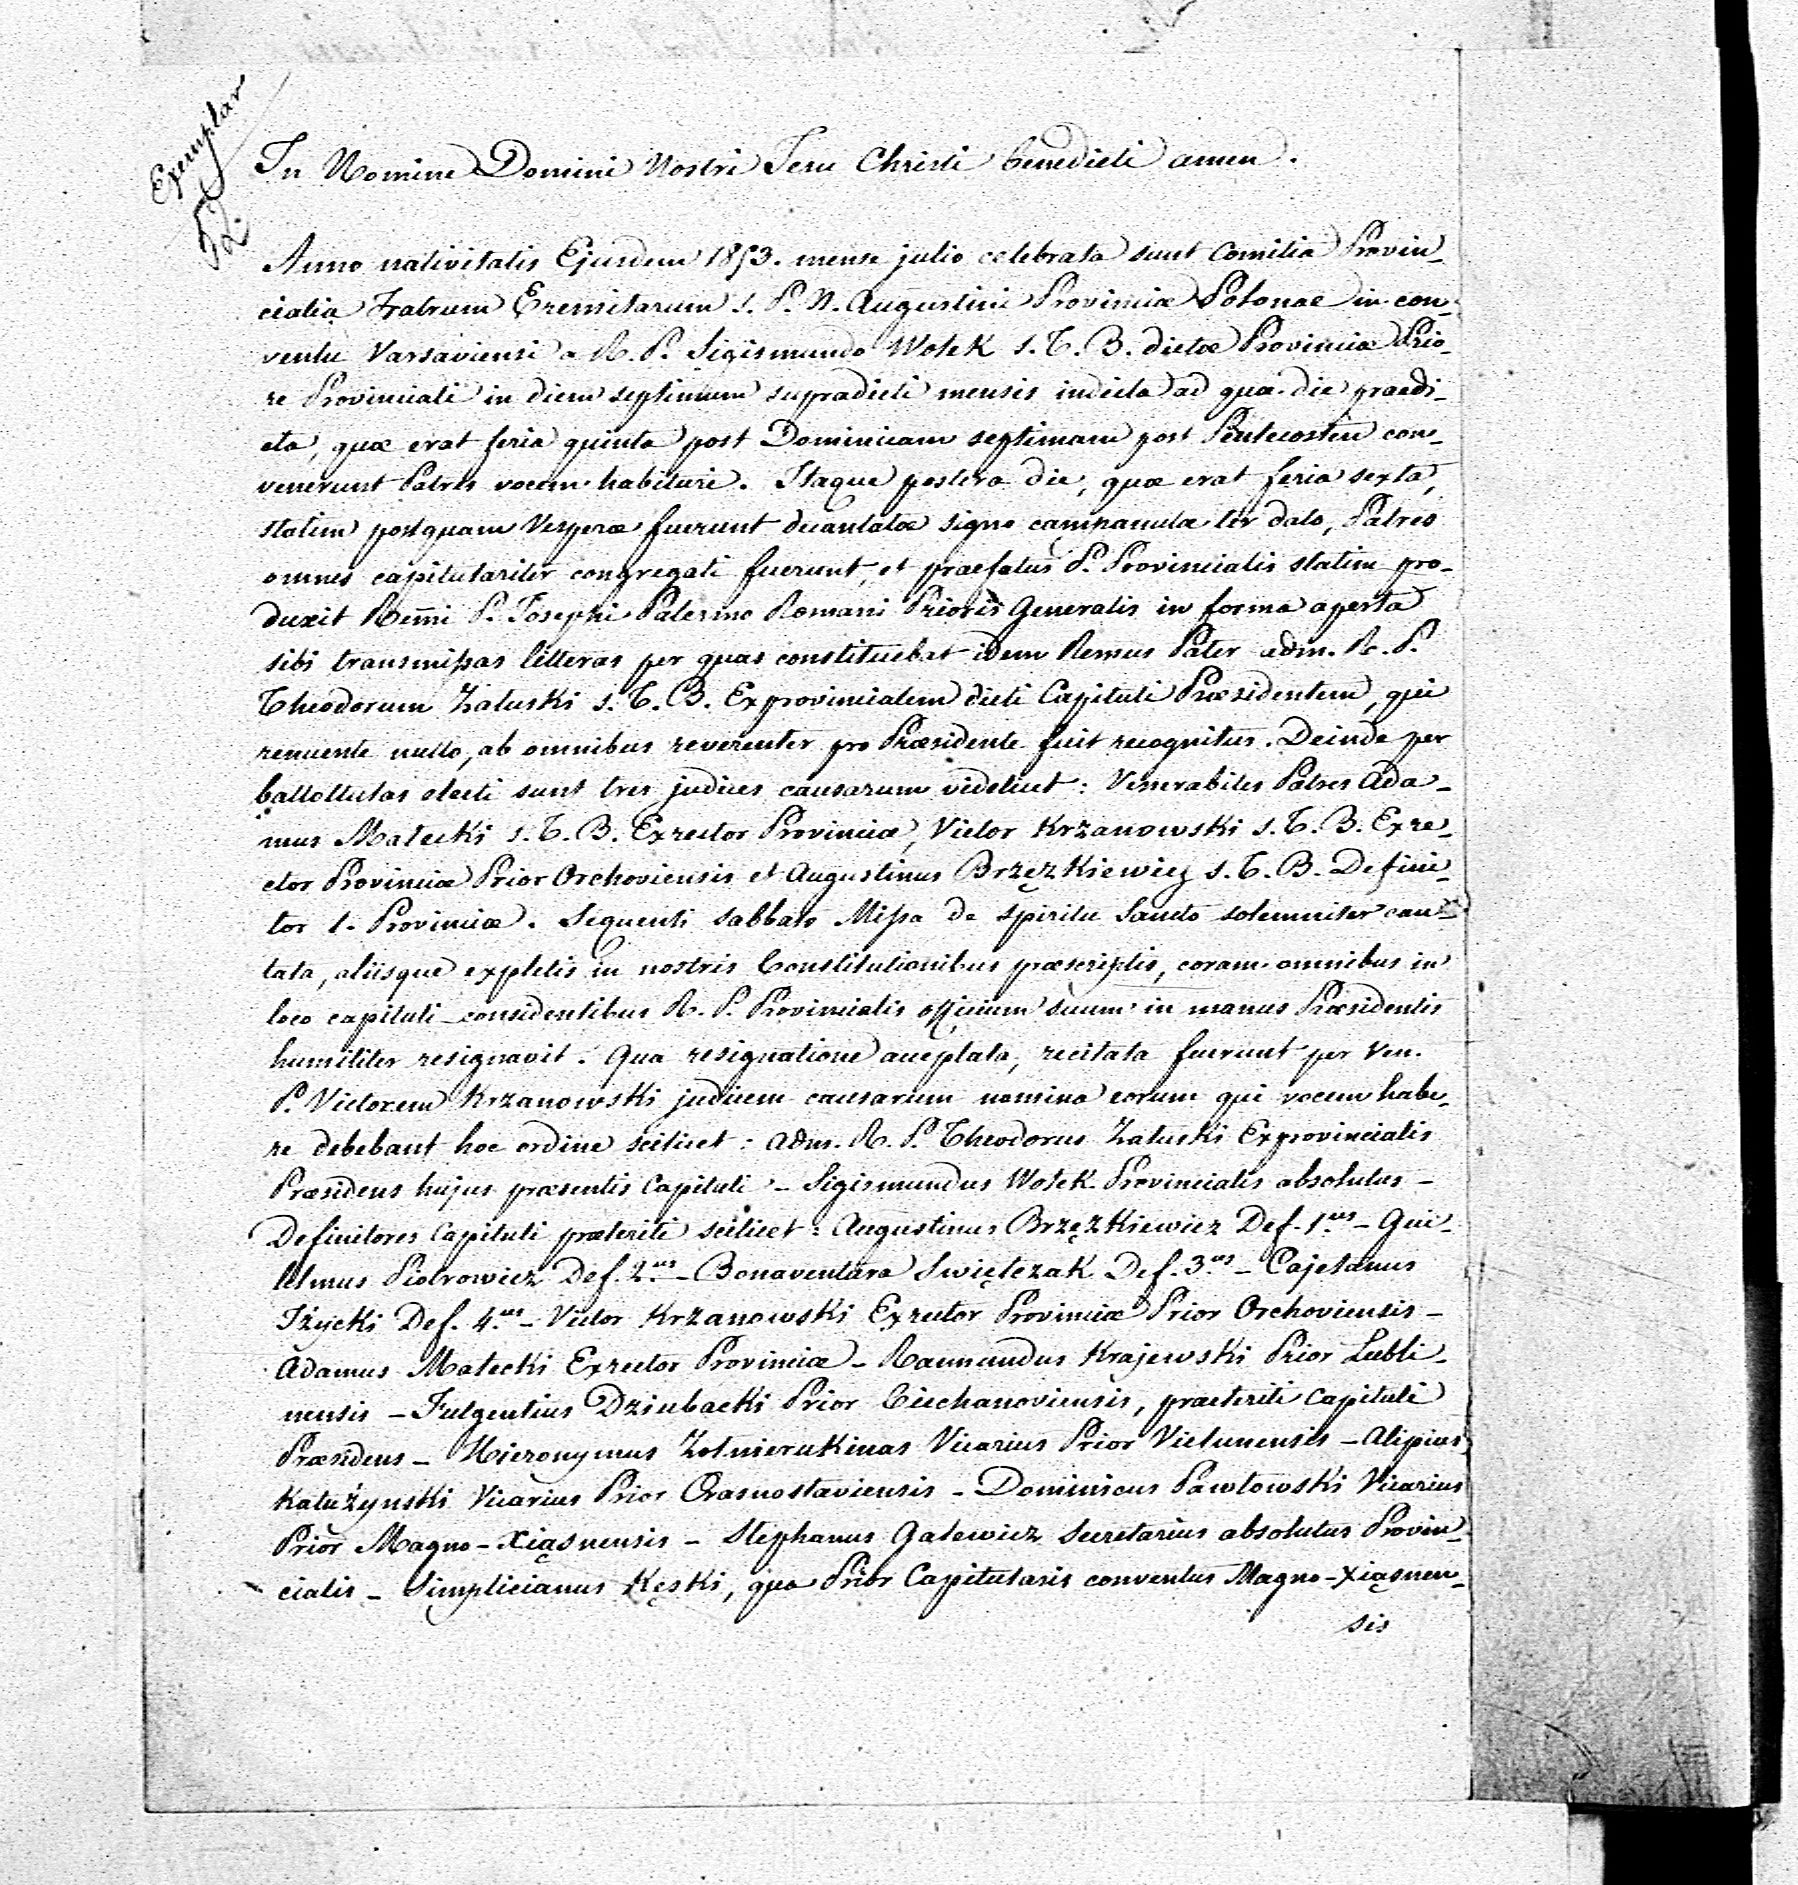 Exemplar
In Nomine Domini Nostri Jesu Christi benedicti amen.
Anno nativitatis Ejusdem 1853. mense julio celebrata sunt Comitia Provin-
cialia Fratrum Eremitarum S. P. N. Augustini Provinciæ Polonae in con-
ventu Varsaviensi a R. P. Sigismundo Wołek S. T. B. dictæ Provinciæ Prio-
re Provinciali in diem septimum supradicti mensis indicta ad quæ die praedi-
cta, quæ erat feria quinta post Dominicam septimam post Pentecosten con-
venerunt Patres vocem habituri. Itaque postera die, quæ erat feria sexta,
statim postquam Vesperæ fuerunt decantatæ signo campanulæ ter dato, Patres
omnes capitulariter congregati fuerunt, et praefatus P. Provincialis statim pro-
duxit Remi P. Josephi Palermo Romani Prioris Generalis in forma aperta
sibi transmissas litteras per quas constituebat idem Remus Pater adm. R. P.
Theodorum Załuski S. T. B. Exprovincialem dicti Capituli Præsidentem, qui
renuente nullo, ab omnibus reverenter pro Præsidente fuit recognitus. Deinde per
ballottulas electi sunt tres judices causarum videlicet: Venerabiles Patres Ada-
mus Małecki S. T. B. Exrector Provinciæ, Victor Krzanowski S. T. B. Exre-
ctor Provinciæ Prior Orchoviensis et Augustinus Brzęzkiewicz S. T. B. Defini-
tor 1. Provinciæ. Sequenti sabbato Missa de Spiritu Sancto solemniter can-
tata, aliisque expletis in nostris Constitutionibus præscriptis, coram omnibus in
loco capituli considentibus R. P. Provincialis officium suum in manus Præsidentis
humiliter resignavit. Qua resignatione acceptata, recitata fuerunt per Ven.
P. Victorem Krzanowski judicem causarum nomina eorum qui vocem habe-
re debebant hoc ordine scilicet: Adm. R. P. Theodorus Załuski Exprovincialis
Præsidens hujus præsentis Capituli - Sigismundus Wołek Provincialis absolutus -
Definitores Capituli præteriti scilicet: Augustinus Brzęzkiewicz Def. 1.us - Gui-
lelmus Piotrowicz Def. 2.us - Bonaventura Swiętczak Def. 3.us - Cajetanus
Iżycki Def. 4.us - Victor Krzanowski Exrector Provinciæ Prior Orchoviensis -
Adamus Małecki Exrector Provinciæ - Raimundus Krajewski Prior Lubli-
nensis - Fulgentius Dziubacki Prior Ciechanoviensis, praeteriti Capituli
Præsidens - Hieronymus Żołnierukinas Vicarius Prior Vielunensis - Alipius
Kałużynski Vicarius Prior Crasnostaviensis - Dominicus Pawłowski Vicarius
Prior Magno-Xiąsnensis - Stephanus Galewicz Secretarius absolutus Provin-
cialis - Simplicianus Kęski, qua Prior Capitularis conventus Magno-Xiąsnen-
sis